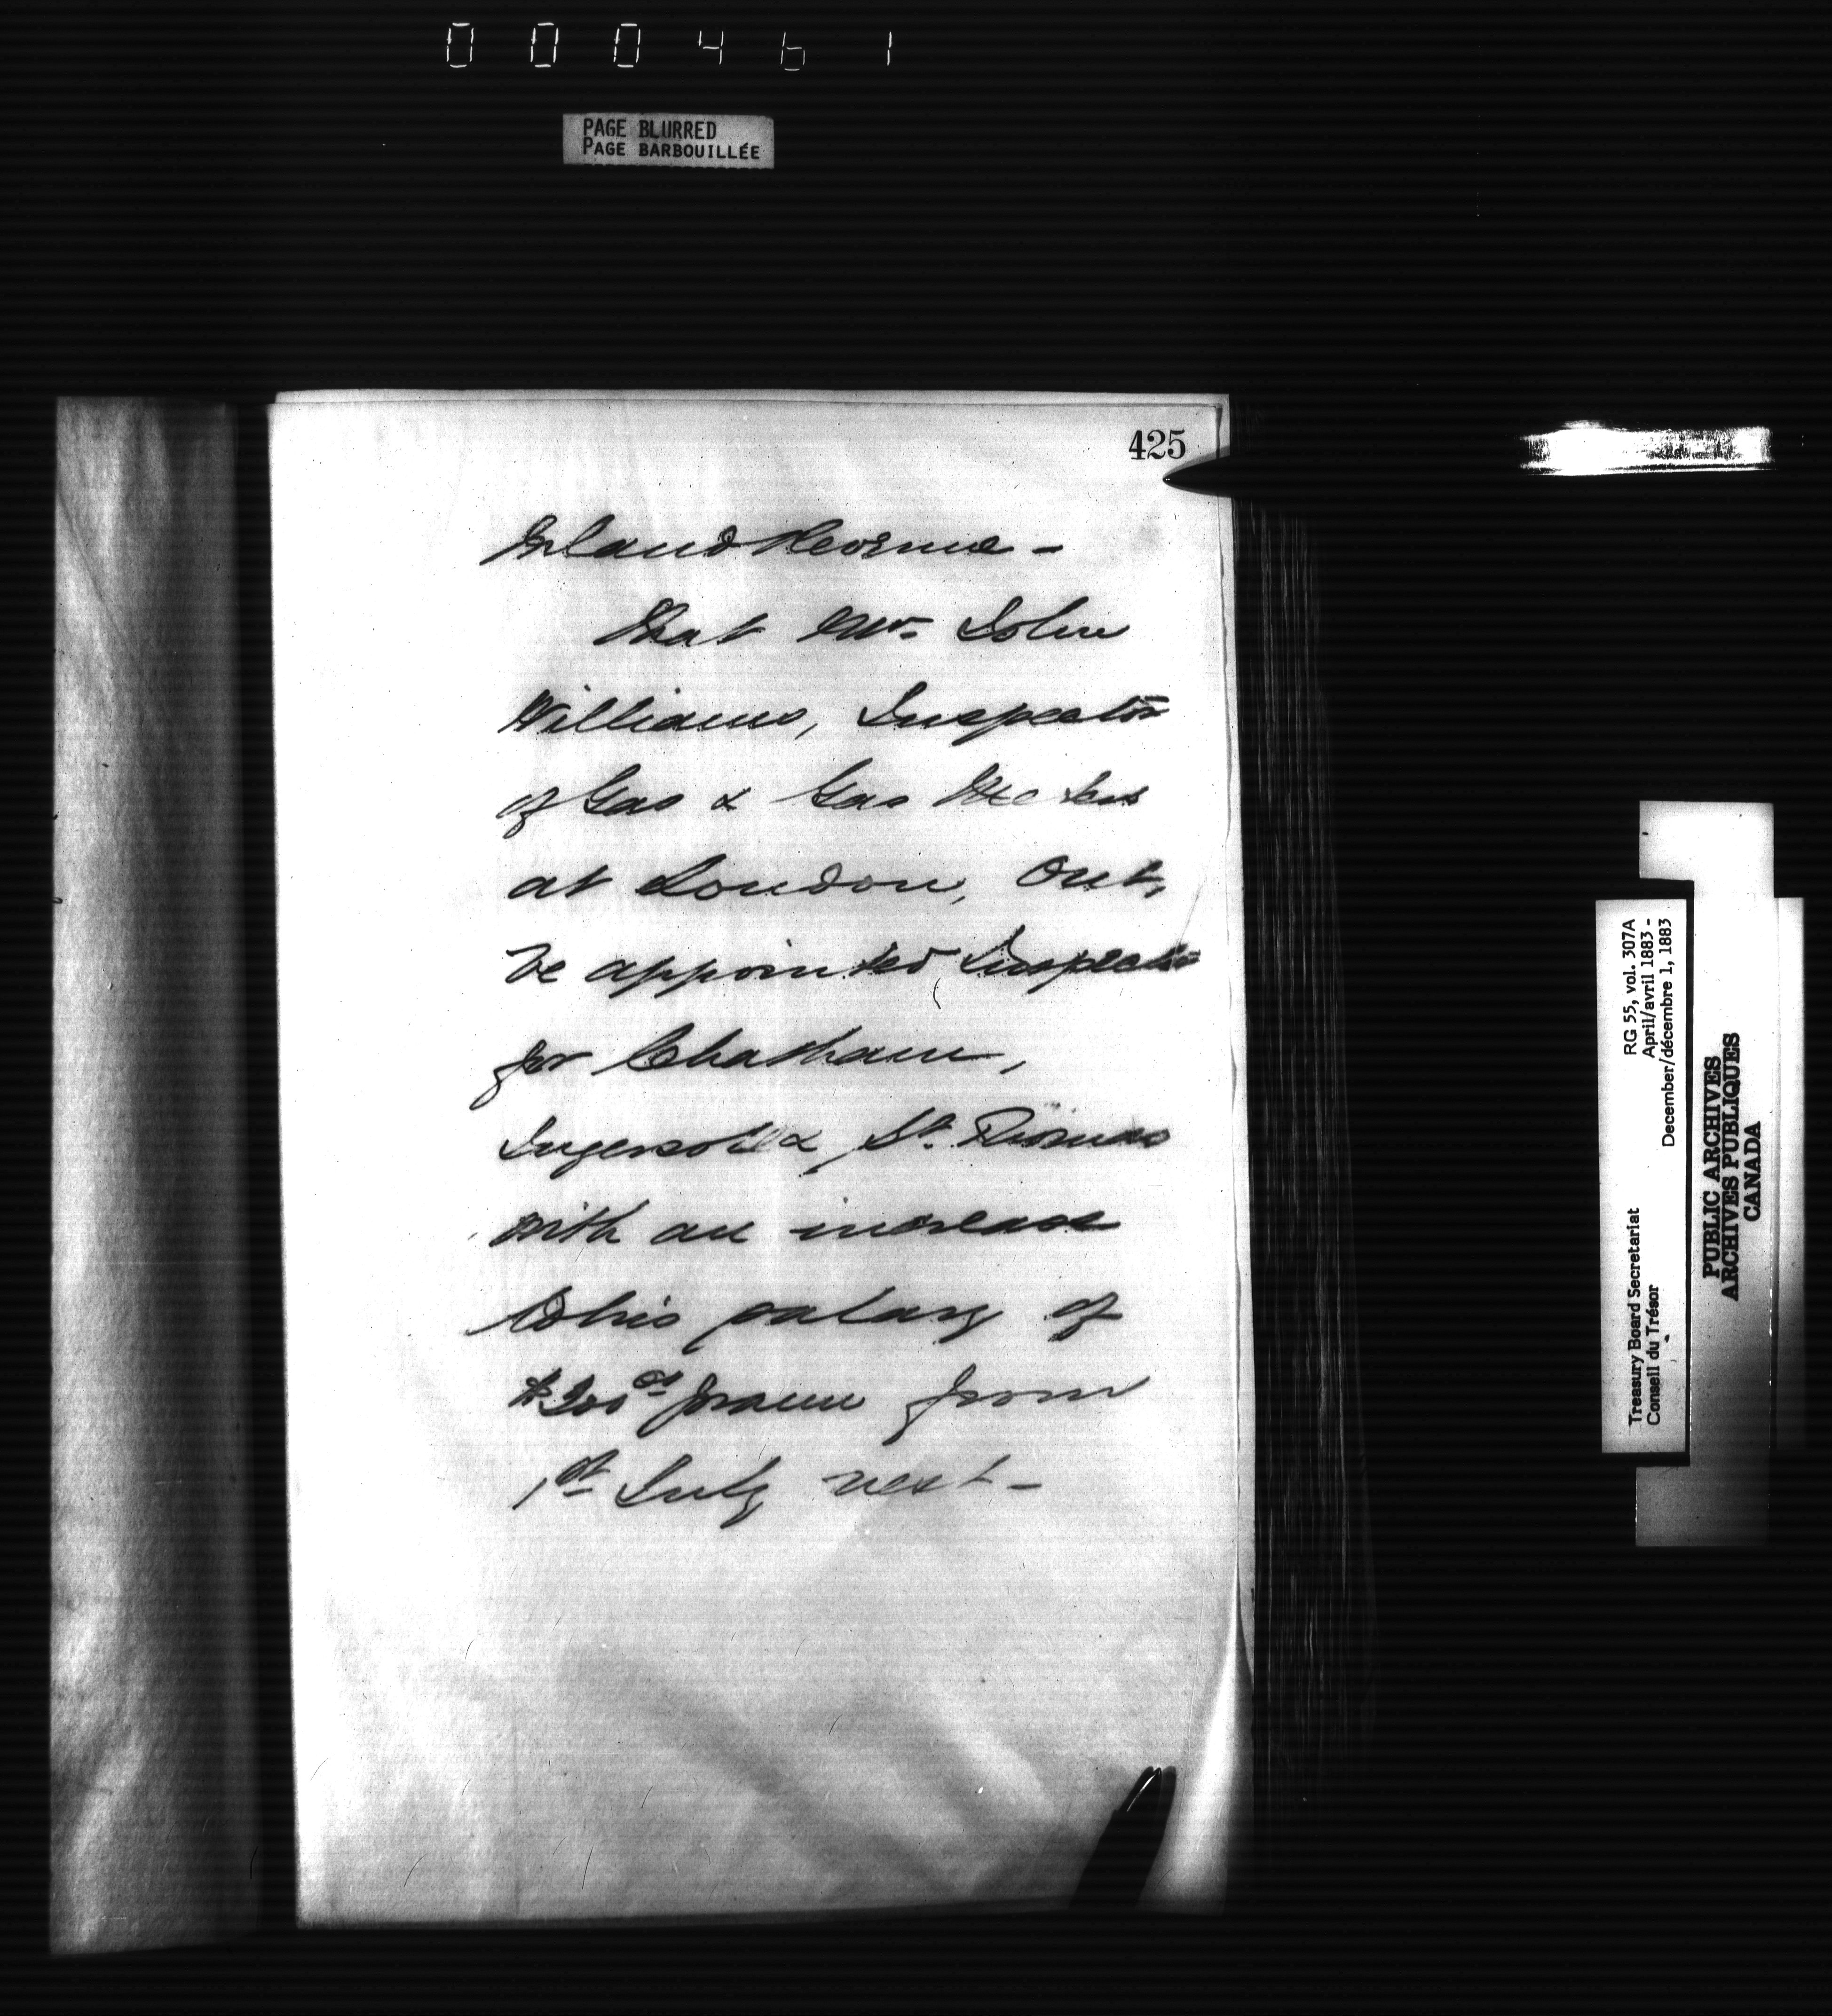 000461
PAGE BLURRED
PAGE BARBOUILLÉE
425
Inland Revenue -
That Mr. John
Williams, Inspector
of Gas & Gas Meters
at London, Ont,
be appointed Inspector
for Chatham,
Ingersoll & St. Thomas
with an increase
to his salary of
$200 00 per ann from
1st July next -
RG 55, vol. 307A
April/avril 1883 -
December/décembre 1, 1883
Treasury Board Secretariat
Conseil du Trésor
PUBLIC ARCHIVES
ARCHIVES PUBLIQUES
CANADA